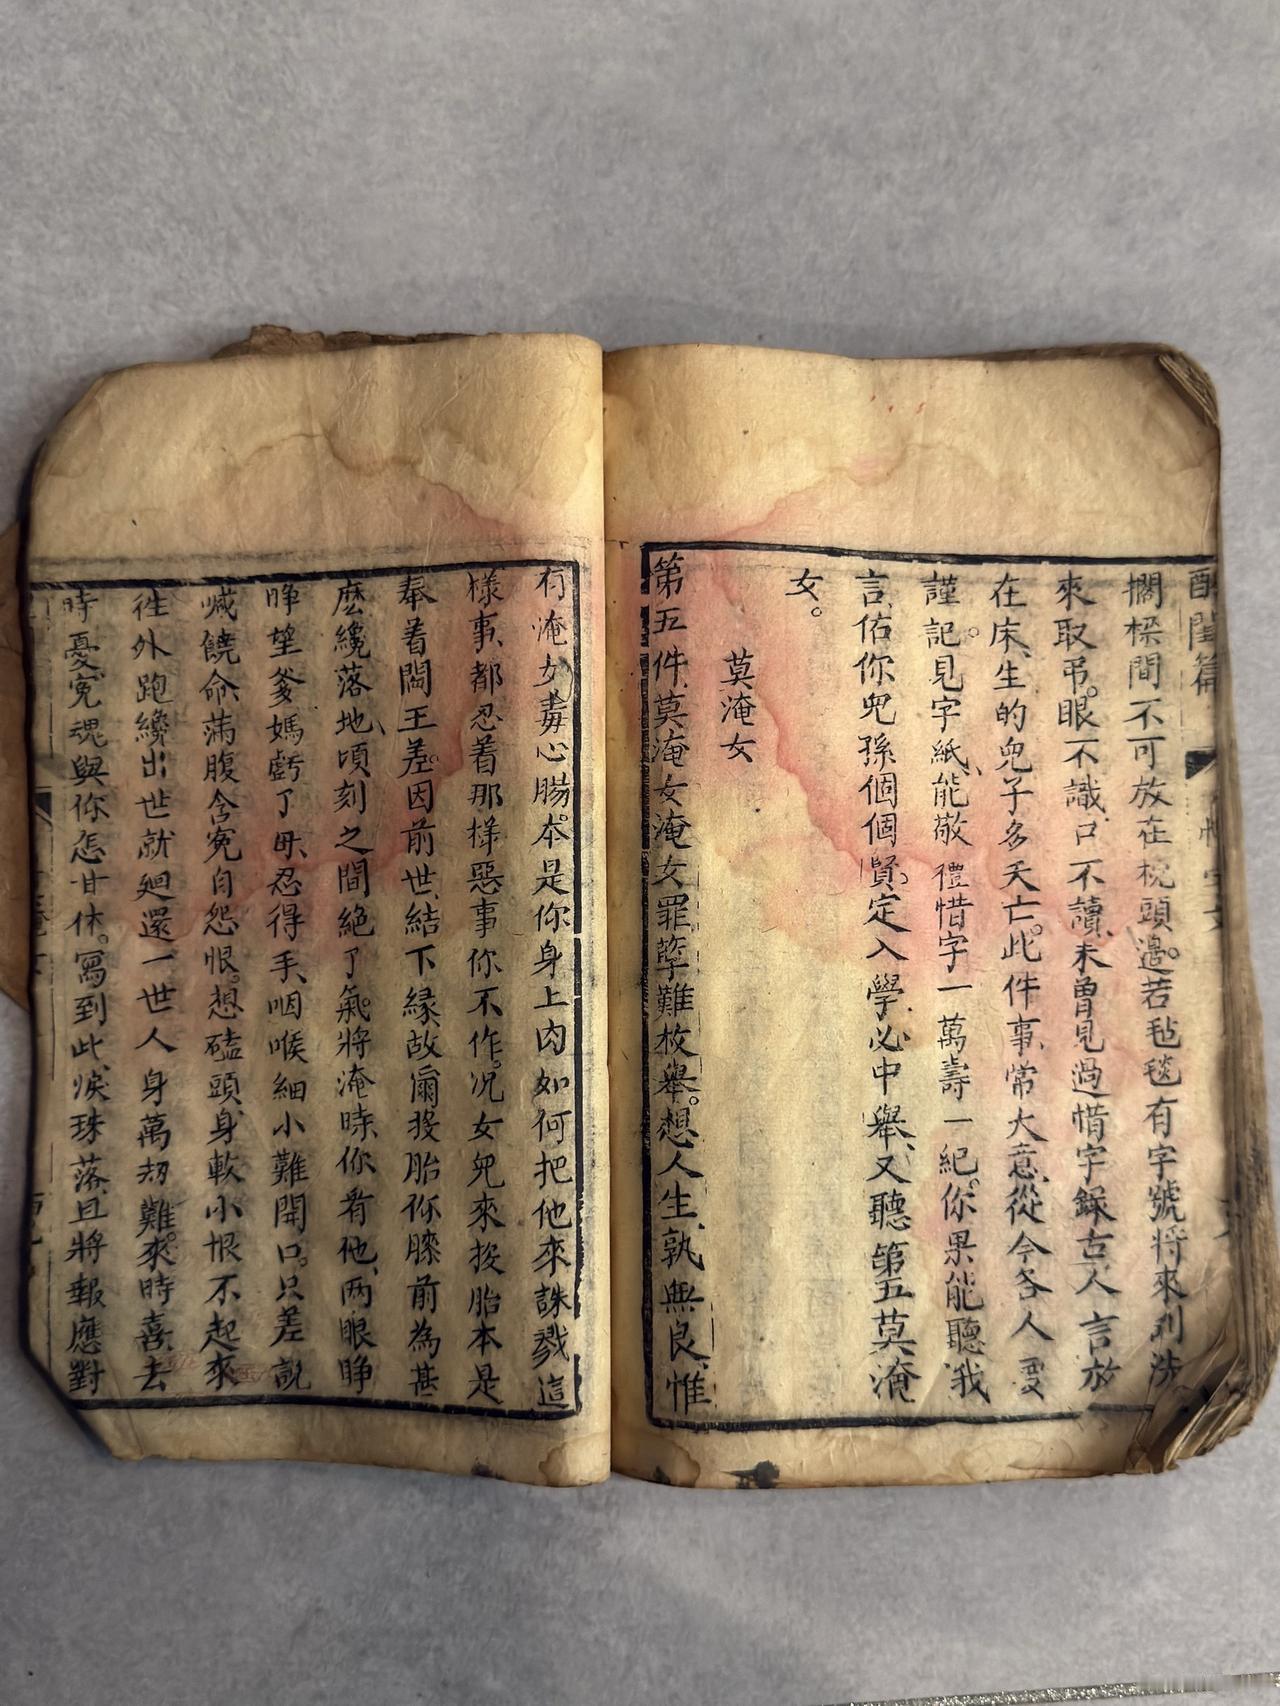 醒閨篇
擱梁間不可放在枕頭邊。若毡毯有字號將來剁洗
來取弔。眼不識、口不讀、未曾見過惜字錄。古人言放
在床、生的兒子多夭亡。此件事、常大意、從今各人要
謹記。見字紙、能敬禮、惜字一萬壽一紀。你果能聽我
言、佑你兒孫個個賢。定入學、必中舉、又聽第五莫淹
女。
莫淹女
第五件、莫淹女、淹女罪孽難枚舉。想人生、孰無良、惟
有淹女毒心腸。本是你身上肉、如何把他來誅戮、這
樣事、都忍着、那樣惡事你不作。況女兒來投胎、本是
奉着閻王差。因前世、結下緣、故爾投胎你膝前、為甚
麼、纔落地、頃刻之間絕了氣。將淹時、你看他、两眼睁
睁望爹媽。虧了毋、忍得手、咽喉細小難開口。只差說
喊饒命、滿腹含寃自怨恨。想磕頭、身軟小、恨不起來
徃外跑。纔出世、就廻還、一世人身萬刼難。來時喜、去
時憂、寃魂與你怎甘休。寫到此、淚珠落、且將報應對